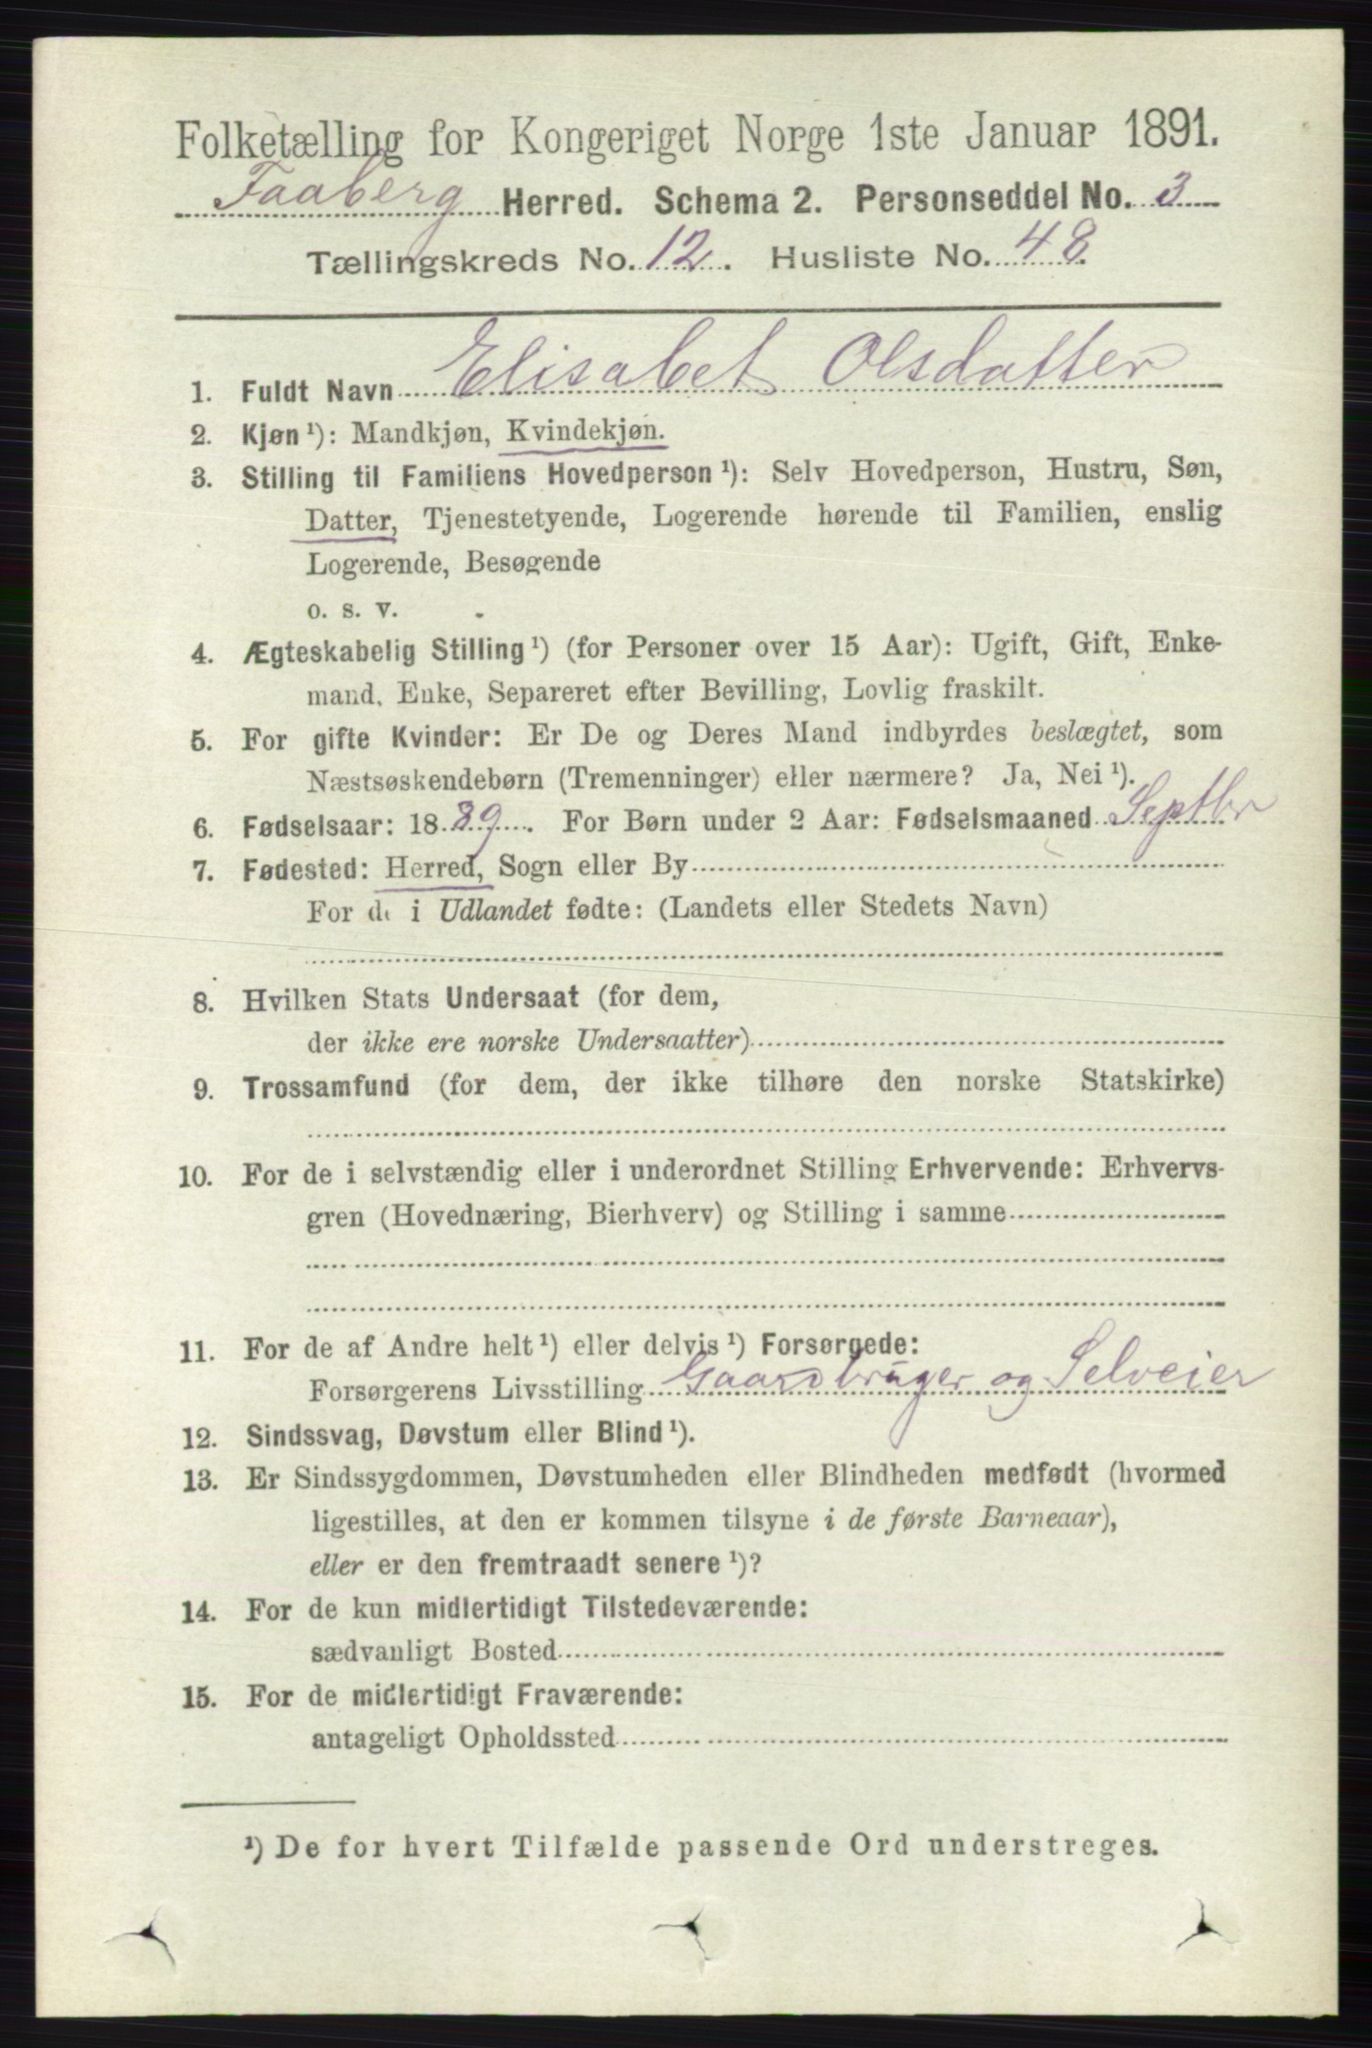 Folketælling for Kongeriget Norge 1ste Januar 1891.
Faaberg Herred. Schema 2. Personseddel No. 3
Tællingskreds No. 12. Husliste No. 48.
1. Fuldt Navn Elisabet Olsdatter
2. Kjøn ¹): Mandkjøn, Kvindekjøn.
3. Stilling til Familiens Hovedperson ¹): Selv Hovedperson, Hustru, Søn,
Datter, Tjenestetyende, Logerende hørende til Familien, enslig
Logerende, Besøgende
o. s. v.
4. Ægteskabelig Stilling ¹) (for Personer over 15 Aar): Ugift, Gift, Enke-
mand, Enke, Separeret efter Bevilling, Lovlig fraskilt.
5. For gifte Kvinder: Er De og Deres Mand indbyrdes beslægtet, som
Næstsøskendebørn (Tremenninger) eller nærmere? Ja, Nei ¹).
6. Fødselsaar: 1889. For Børn under 2 Aar: Fødselsmaaned Septbr
7. Fødested: Herred, Sogn eller By
For de i Udlandet fødte: (Landets eller Stedets Navn)
8. Hvilken Stats Undersaat (for dem,
der ikke ere norske Undersaatter)
9. Trossamfund (for dem, der ikke tilhøre den norske Statskirke)
10. For de i selvstændig eller i underordnet Stilling Erhvervende: Erhvervs-
gren (Hovednæring, Bierhverv) og Stilling i samme
11. For de af Andre helt ¹) eller delvis ¹) Forsørgede:
Forsørgerens Livsstilling Gaardbruger og Selveier
12. Sindssvag, Døvstum eller Blind ¹).
13. Er Sindssygdommen, Døvstumheden eller Blindheden medfødt (hvormed
ligestilles, at den er kommen tilsyne i de første Barneaar),
eller er den fremtraadt senere ¹)?
14. For de kun midlertidigt Tilstedeværende:
sædvanligt Bosted
15. For de midlertidigt Fraværende:
antageligt Opholdssted
¹) De for hvert Tilfælde passende Ord understreges.